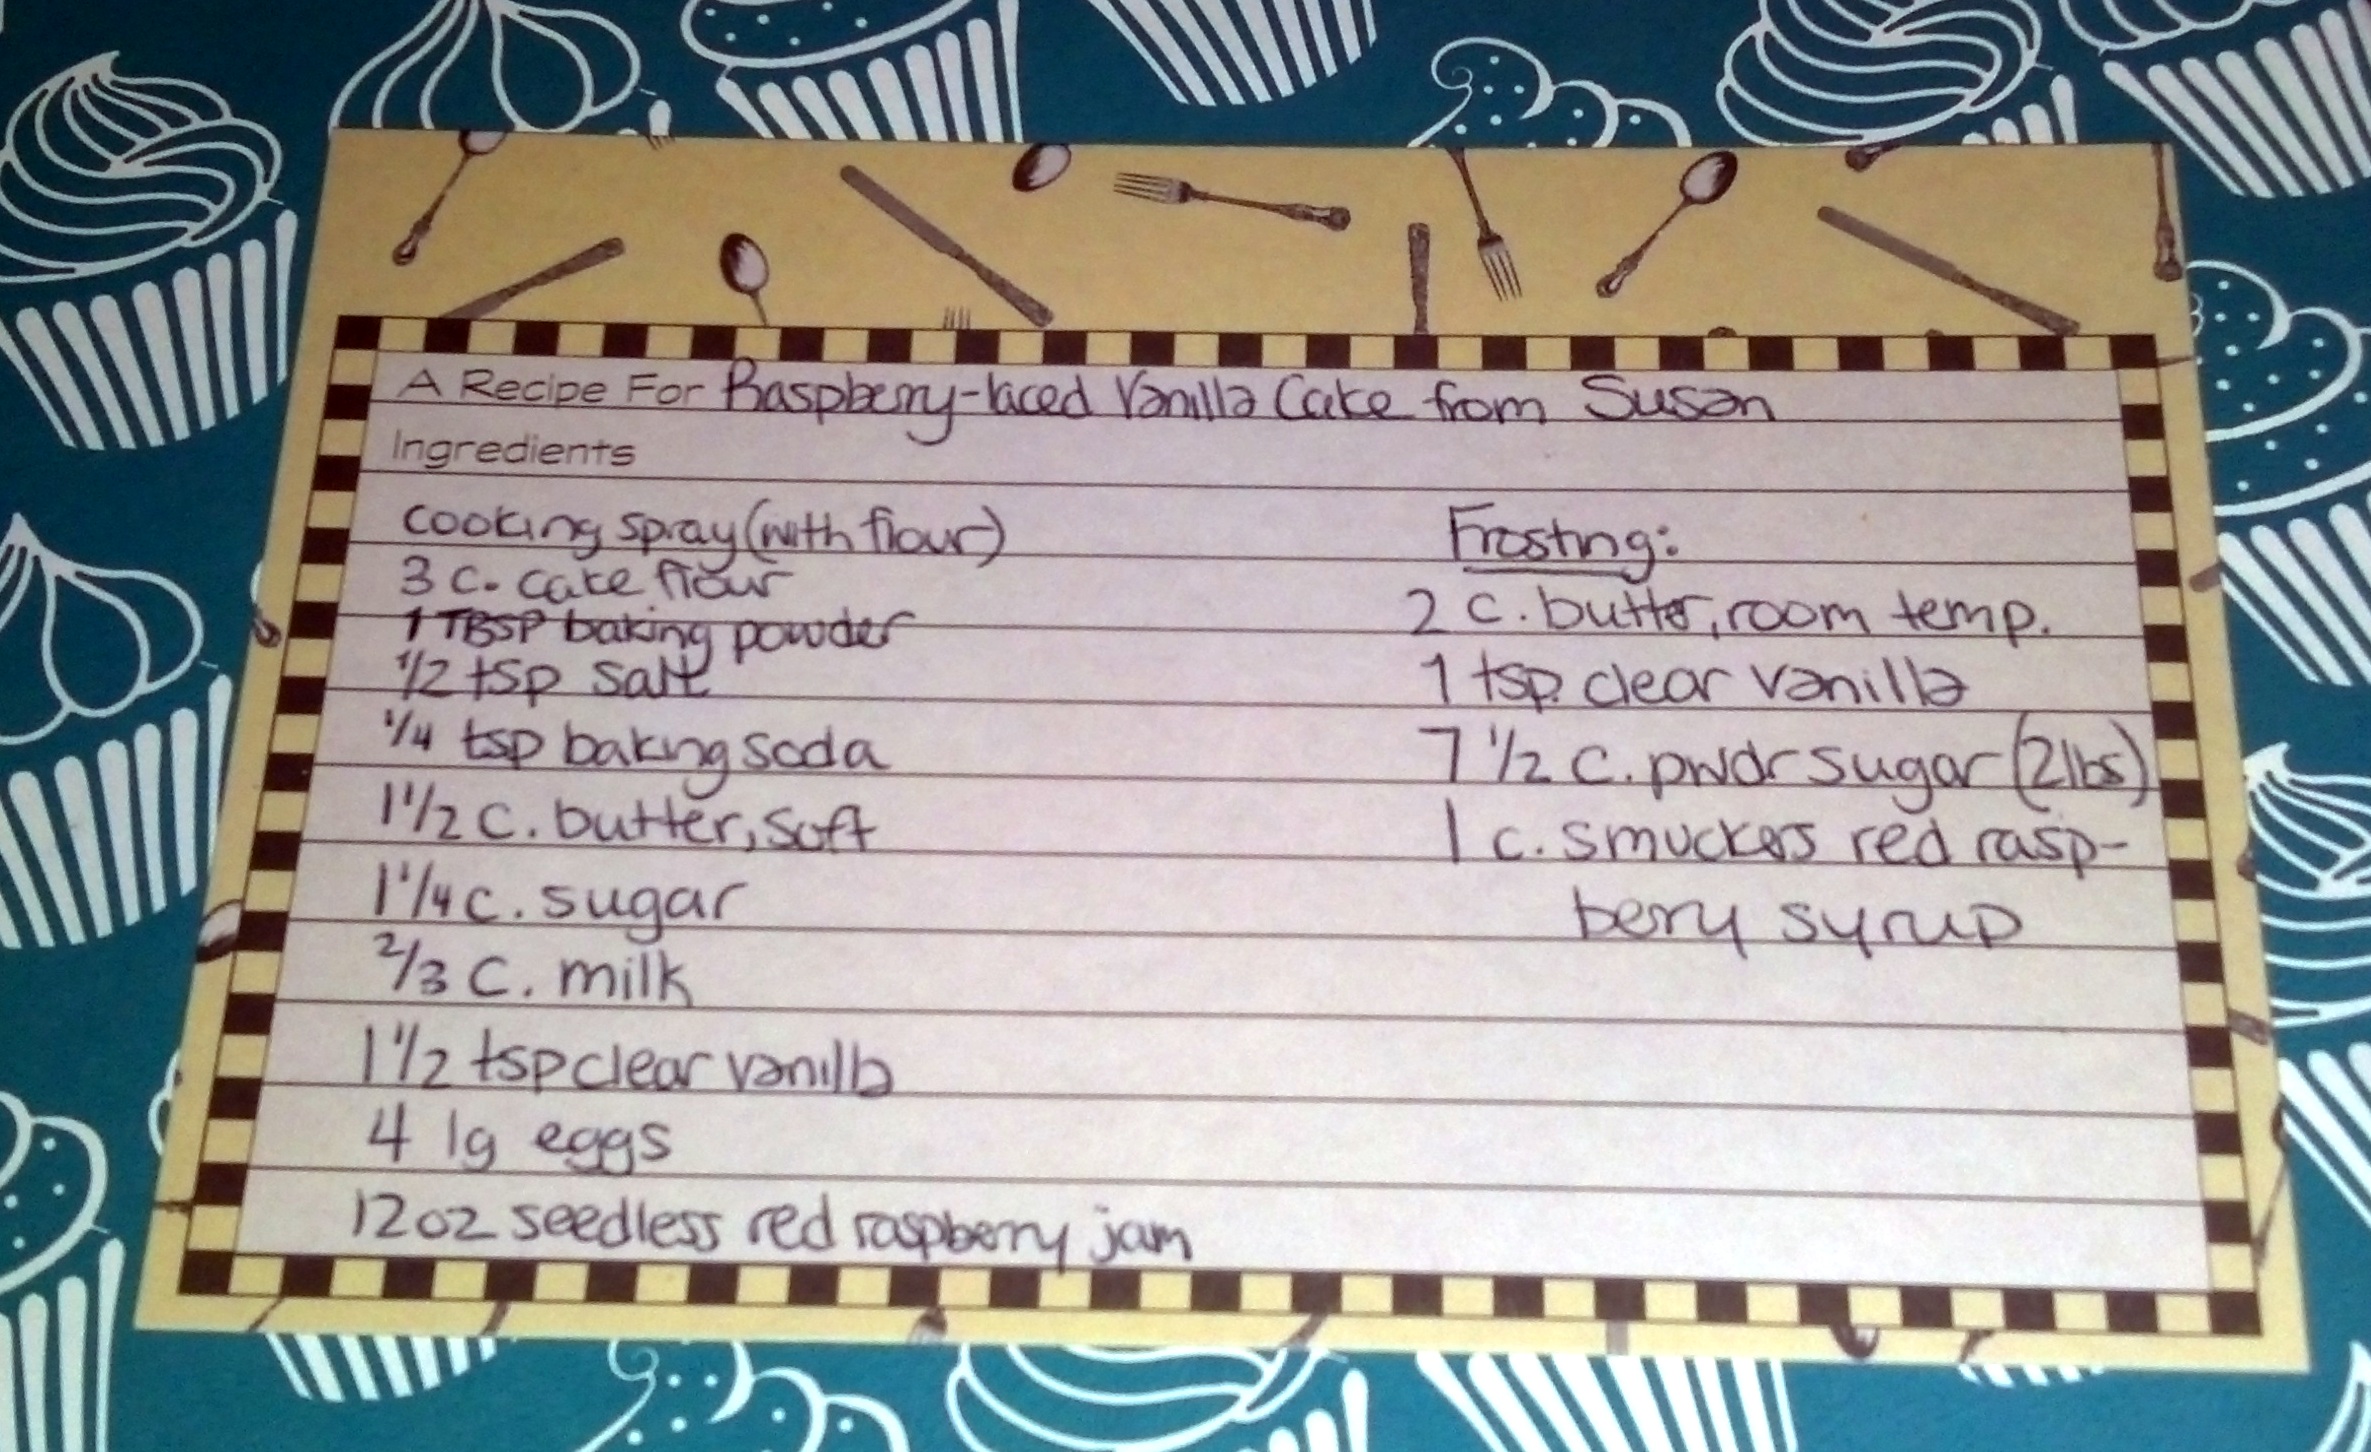 A Recipe For Raspberry-laced Vanilla Cake from Susan
Ingredients
cooking spray (with flour)
3 c. cake flour
1 TBSP baking powder
1/2 tsp salt
1/4 tsp baking soda
1 1/2 c. butter, soft
1 1/4 c. sugar
2/3 c. milk
1 1/2 tsp clear vanilla
4 lg eggs
12 oz seedless red raspberry jam
Frosting:
2 c. butter, room temp.
1 tsp. clear vanilla
7 1/2 c. pwdr sugar (2 lbs)
1 c. smuckers red rasp-
berry syrup